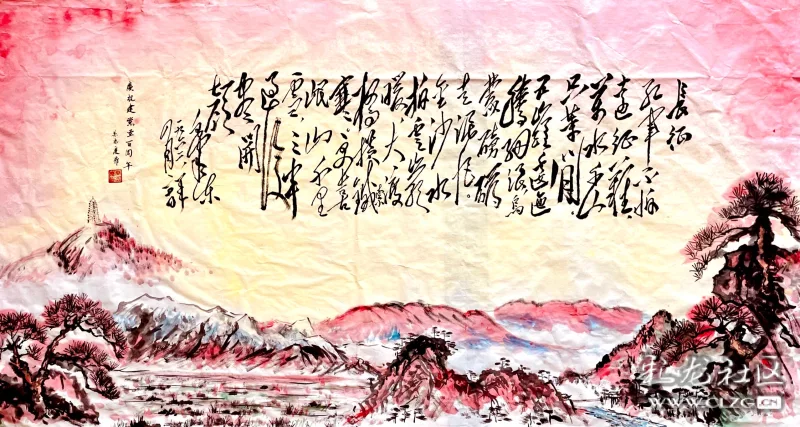 長征
紅軍不怕
遠征難
萬水千山
只等閒
五嶺逶迤
騰細浪烏
蒙磅礴
走泥丸
金沙水
拍雲崖
暖大渡
橋橫鐵索
寒更喜
岷山千里
雪三軍
過後
盡開
顏
毛澤東
一九六二年
慶祝建黨壹百周年
龙社区
WWW.CLZG.CN